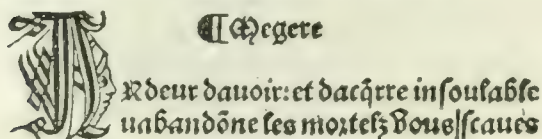 ¶ Megere
ARdeur dauoir:et dacq̄rre inſoulable
habandōne les mortelz vous ſcaues